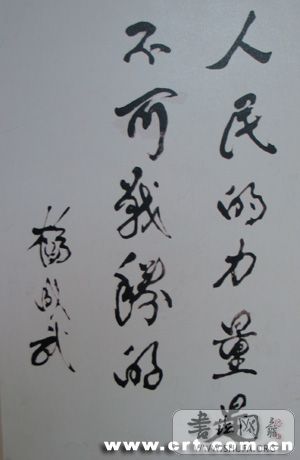 人民的力量是
不可战胜的
杨成武
www.crt.com.cn